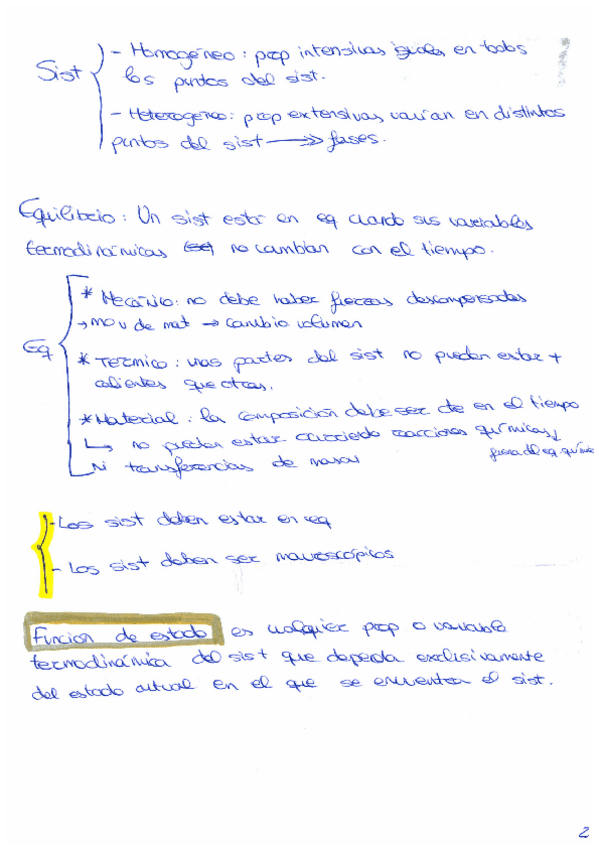 Sist
- Homogéneo: prop intensivas iguales en todos
los puntos del sist.
- Heterogéneo: prop extensivas varían en distintos
puntos del sist → fases.
Equilibrio: Un sist está en eq cuando sus variables
termodinámicas no cambian con el tiempo.
Eq
* Mecánico: no debe haber fuerzas descompensadas
→ mov de mat → cambio volumen
* Térmico: unas partes del sist no pueden estar +
calientes que otras.
* Material: la composición debe ser cte en en el tiempo
↳ no pueden estar ocurriendo reacciones químicas
fuera del eq químico
Ni transferencias de masas
- Los sist deben estar en eq
- Los sist deben ser macroscópicos
Función de estado es cualquier prop o variable
termodinámica del sist que dependa exclusivamente
del estado actual en el que se encuentra el sist.
2